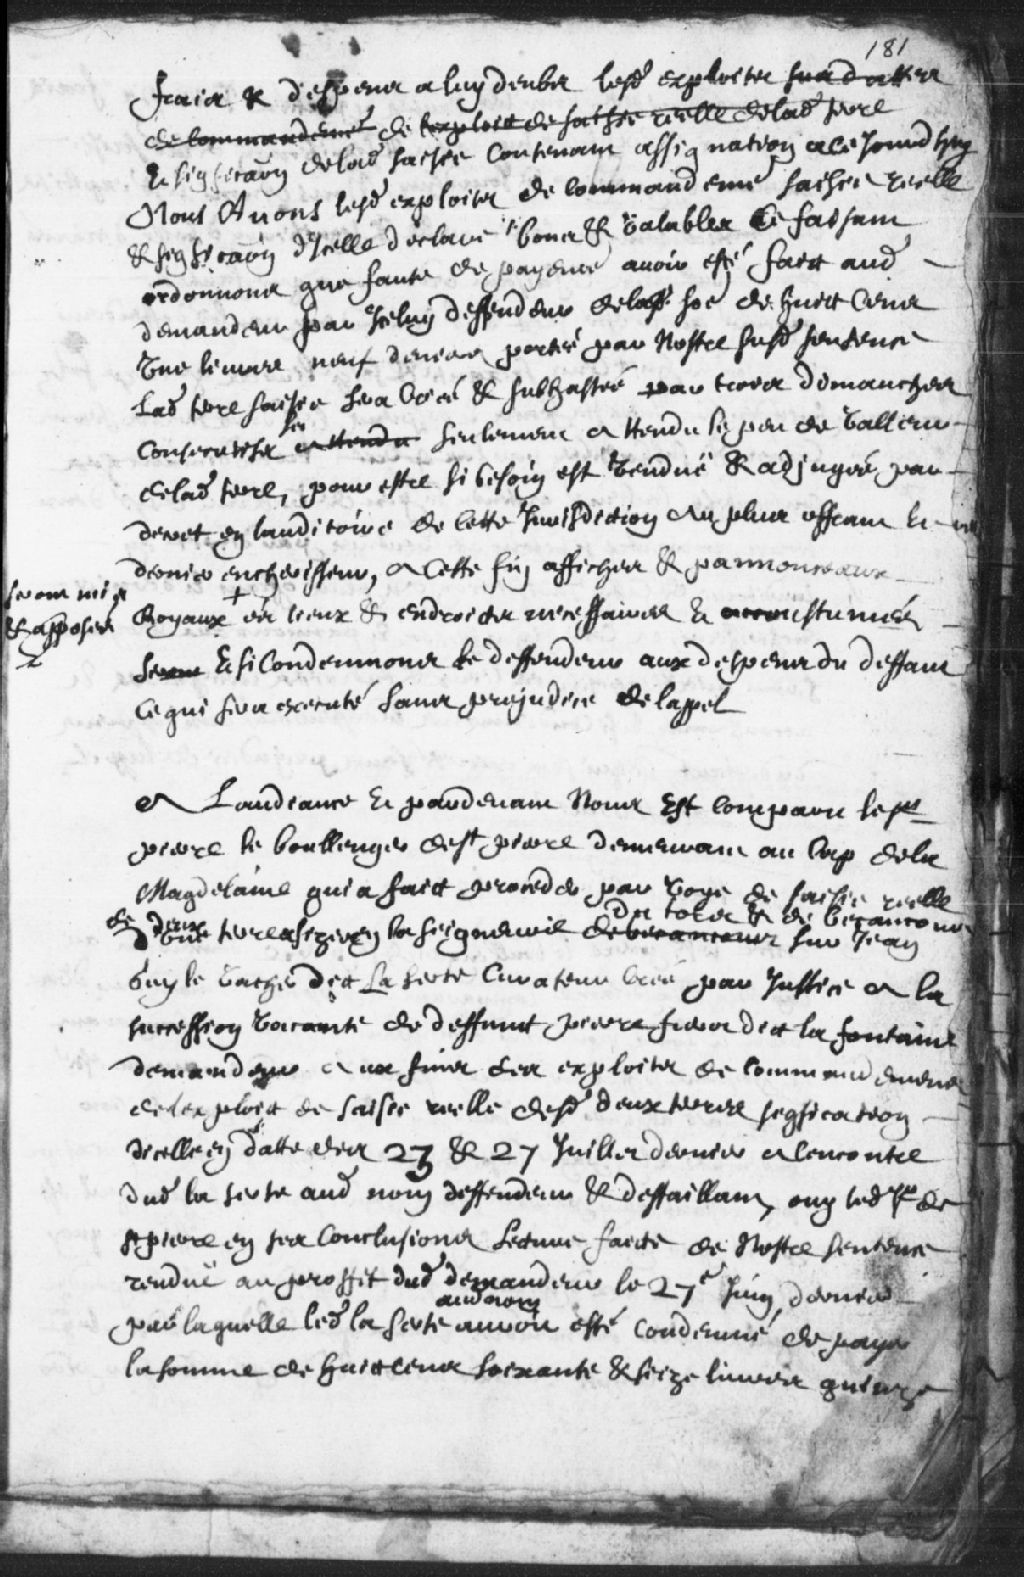 181
fraix & despens a luy deubs lesd exploits susdattez
de commandemt de lexploit de saisie reelle de lad terre
& signiffica͠on de lad saisie contenant assignation a ce jourdhuy
Nous Avons lesd exploits de commandemt saisie reelle
& signiffica͠on dIcelle declaré bons & Valables Ce faisant
ordonnons que faute de payement avoir esté faict aud
demandeur par Iceluy deffendeur de lad soe de huict Cens
Une livres neuf deniers portée par Nostre susd sentence
Lad terre saisie sera criée & subhastée par trois dimanches
consecutifs attendu seulement attendu le peu de Valleur
de lad terre, pour estre si besoin est Vendue & adjugée par
decret en lauditoire de cette Jurisdiction au plus offrant &
dernier encherisseur, A Cette fin affiches & pannonceaux
Royaux + es lieux & endroicts necessaires & accoustumés
seront mis
& apposés
seront & si Condemnons le deffendeur aux despens du deffaut
Ce qui sera executé sans prejudice de lappel
A Laudiance & pardevant Nous Est comparu le sr
pierre le boullenger de st pierre demeurant au Cap de la
Magdelaine qui a faict proceder par Voye de saisie reelle
de deux
du tolu & de becancour
dune terre assize en la seigneurie de becancour sur Jean
guy le Vacher dict La serte Curateur creé par Justice a la
succession Vacante de deffunct pierre dict la fontaine
demandeur aux fins des exploits de commandement
de lexploict de saisie reelle desd deux terres sigfication
dicelle en datte des 23 & 27 Juillet dernier alencontre
dud la serte aud nom deffendeur & deffaillant, ouy led sr de
st pierre en ses Conclusions Lecture faicte de Nostre sentence
rendue au proffit dud demandeur le 27e Juin dernier
aud nom
par laquelle led la serte auroit esté condemné de payer
la somme de huict cens soixante & seize livres quinze